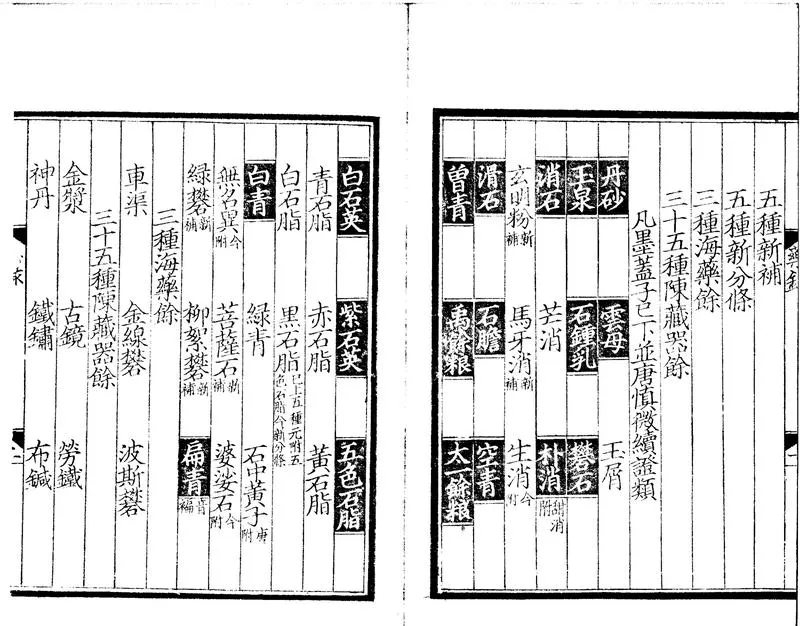 五種新補
五種新分條
三種海藥餘
三十五種陳藏器餘
凡墨蓋子已下並唐慎微續證類
丹砂 雲母 玉屑
玉泉 石鍾乳 礬石
消石 芒消 朴消甜消附
玄明粉新補 馬牙消新補 生消今附
滑石 石膽 空青
曾青 禹餘粮 太一餘粮
白石英 紫石英 五色石脂
青石脂 赤石脂 黃石脂
白石脂 黑石脂已上五種元附五色石脂今新分條
白青 綠青 石中黃子唐附
無名異今附 菩薩石新補 婆娑石今附
綠礬新補 柳絮礬新補 扁青
三種海藥餘
車渠 金線礬 波斯礬
三十五種陳藏器餘
金漿 古鏡 勞鐵
神丹 鐵鏽 布鍼